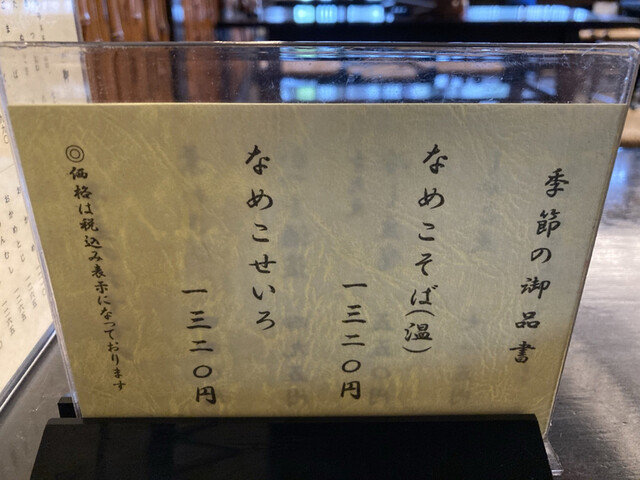 季節の御品書
なめこそば(温)
一三二〇円
なめこせいろ
一三二〇円
◎価格は税込み表示になっております